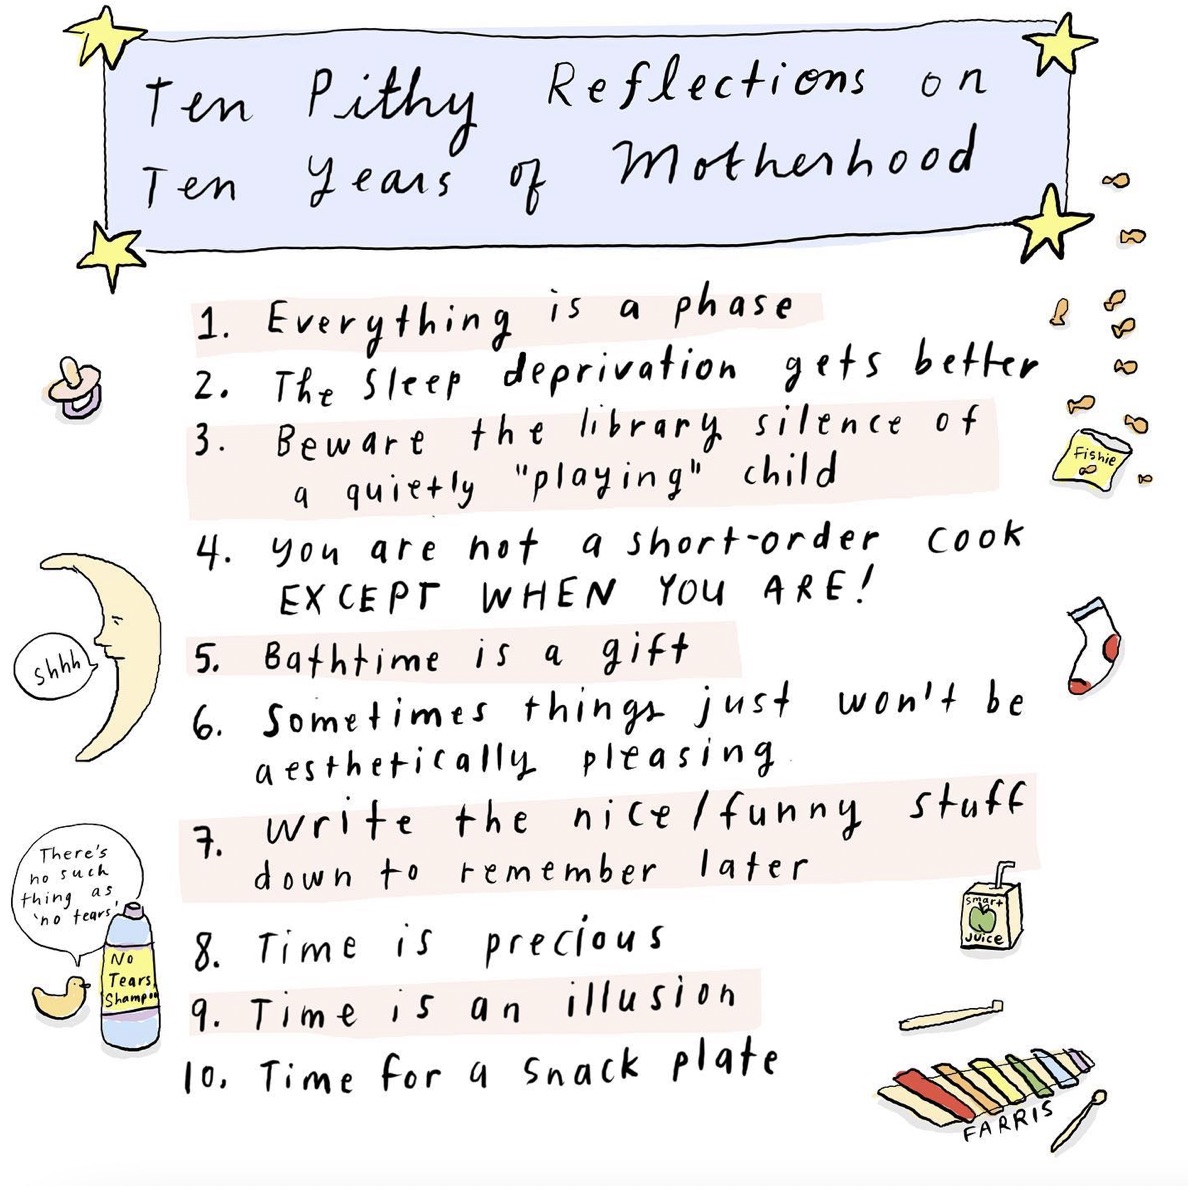 Ten Pithy Reflections on
Ten Years of Motherhood
1. Everything is a phase
2. The Sleep deprivation gets better
3. Beware the library silence of
a quietly "playing" child
4. you are not a short-order cook
EXCEPT WHEN YOU ARE!
5. Bathtime is a gift
6. Sometimes things just won't be
aesthetically pleasing
7. Write the nice/funny stuff
down to remember later
8. Time is precious
9. Time is an illusion
10. Time for a snack plate
Fishie
shhh
There's
no such
thing as
'no tears'
No
Tears
Shampoo
smart
JUICE
FARRIS